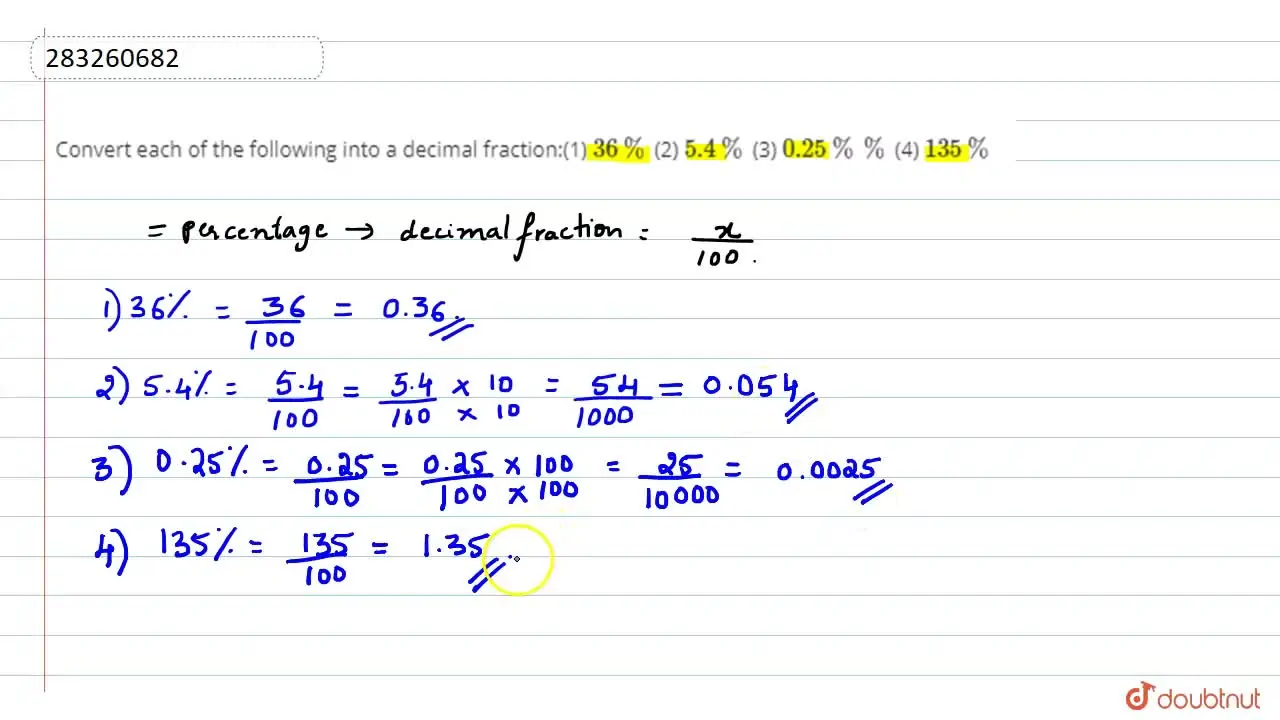 283260682
Convert each of the following into a decimal fraction:(1) 36 % (2) 5.4 % (3) 0.25 % % (4) 135 %
= percentage → decimal fraction = x/100.
1) 36% = 36/100 = 0.36.
2) 5.4% = 5.4/100 = 5.4/100 × 10/× 10 = 54/1000 = 0.054
3) 0.25% = 0.25/100 = 0.25/100 × 100/× 100 = 25/10000 = 0.0025
4) 135% = 135/100 = 1.35
doubtnut